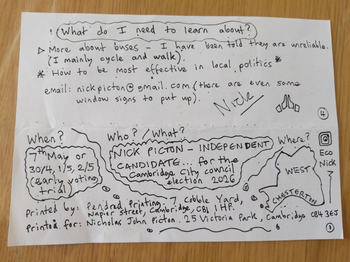 (What do I need to learn about?)
▷ More about buses - I have been told they are unreliable.
(I mainly cycle and walk).
* How to be most effective in local politics *
email: nickpicton@gmail.com (there are even some
window signs to put up).
Nick
4
When?
7th May or
30/4, 1/5, 2/5
(early voting
trial)
Who? / What?
NICK PICTON - INDEPENDENT
CANDIDATE... for the
Cambridge City council
election 2026
Where?
WEST
CHESTERTON
Eco
Nick
Printed by: Pendred Printing. 7, Cobble Yard,
Napier Street, Cambridge, CB1 1HP.
Printed for: Nicholas John Picton. 25 Victoria Park, Cambridge CB4 3EJ
1